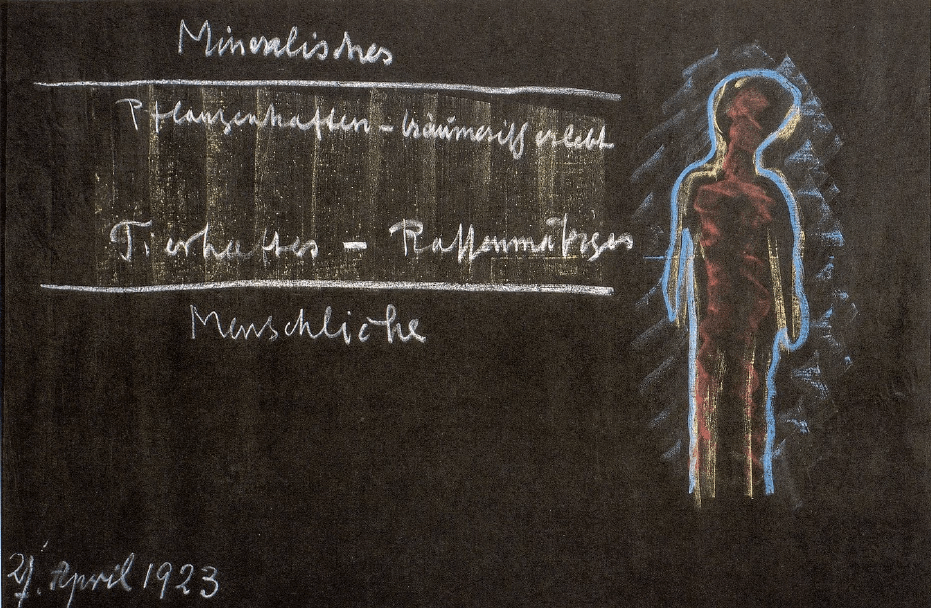 Mineralisches
Pflanzenhaften - träumerisch erlebt
Tierhaftes - Rassenmäßiges
Menschliche
27. April 1923